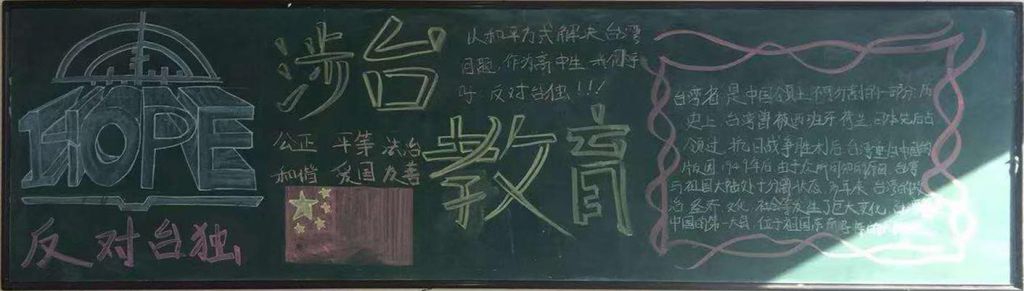 HOPE
反对台独
涉台
教育
公正 平等 法治
和谐 爱国 友善
以和平方式解决台湾
问题,作为高中生 我们
反对台独!!!
台湾省 是中国领土不可分割的一部分,历
史上,台湾曾被西班牙 荷兰 日本先后占
领过,抗日战争胜利后 台湾重归中国的
版图,1949年后 由于众所周知的原因,台湾
与祖国大陆处于分离状态,
治 经济 文化 社会等发生了巨大变化,
中国的第一大岛,位于祖国东南